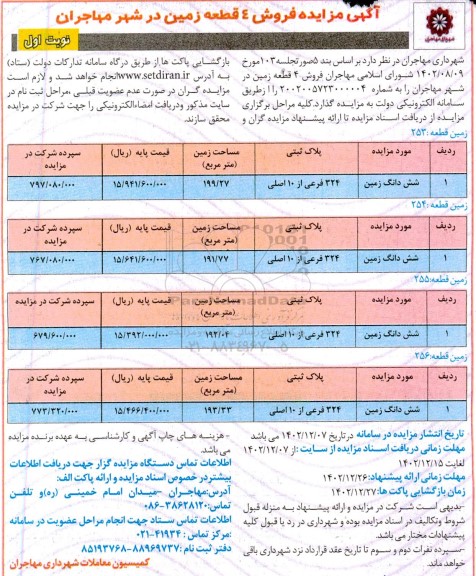 آگهی مزایده فروش ٤ قطعه زمین در شهر مهاجران
نوبت اول
شهرداری مهاجران در نظر دارد بر اساس بند ۵صورتجلسه۱۰۳مورخ
۱۴۰۲/۰۸/۰۹ شورای اسلامی مهاجران فروش ۴ قطعه زمین در
شهر مهاجران را به شماره ۲۰۰۲۰۰۵۷۲۳۰۰۰۰۰۴ را از طریق
سامانه الکترونیکی دولت به مزایده گذارد.کلیه مراحل برگزاری
مزایده از دریافت اسناد مزایده تا ارائه پیشنهاد مزایده گران و
بازگشایی پاکت ها،از طریق درگاه سامانه تدارکات دولت (ستاد)
به آدرس www.setdiran.irانجام خواهد شد و لازم است
مزایده گران در صورت عدم عضویت قبلی،مراحل ثبت نام در
سایت مذکور ودریافت امضاءالکترونیکی را جهت شرکت در مزایده
محقق سازند.
زمین قطعه:۲۵۳
ردیف مورد مزایده پلاک ثبتی مساحت زمین (متر مربع) قیمت پایه (ریال) سپرده شرکت در مزایده
۱ شش دانگ زمین ۳۲۴ فرعی از ۱۰ اصلی ۱۹۹/۲۷ ۱۵/۹۴۱/۶۰۰/۰۰۰ ۷۹۷/۰۸۰/۰۰۰
زمین قطعه:۲۵۴
ردیف مورد مزایده پلاک ثبتی مساحت زمین (متر مربع) قیمت پایه (ریال) سپرده شرکت در مزایده
۱ شش دانگ زمین ۳۲۴ فرعی از ۱۰ اصلی ۱۹۱/۷۷ ۱۵/۶۴۱/۶۰۰/۰۰۰ ۷۶۷/۰۸۰/۰۰۰
زمین قطعه:۲۵۵
ردیف مورد مزایده پلاک ثبتی مساحت زمین (متر مربع) قیمت پایه (ریال) سپرده شرکت در مزایده
۱ شش دانگ زمین ۳۲۴ فرعی از ۱۰ اصلی ۱۹۲/۰۴ ۱۵/۳۹۲/۰۰۰/۰۰۰ ۶۷۹/۶۰۰/۰۰۰
زمین قطعه:۲۵۶
ردیف مورد مزایده پلاک ثبتی مساحت زمین (متر مربع) قیمت پایه (ریال) سپرده شرکت در مزایده
۱ شش دانگ زمین ۳۲۴ فرعی از ۱۰ اصلی ۱۹۳/۳۳ ۱۵/۴۶۶/۴۰۰/۰۰۰ ۷۷۳/۳۲۰/۰۰۰
تاریخ انتشار مزایده در سامانه درتاریخ ۱۴۰۲/۱۲/۰۷ می باشد
مهلت زمانی دریافت اسناد مزایده از سایت :از ۱۴۰۲/۱۲/۰۷
لغایت ۱۴۰۲/۱۲/۱۵
مهلت زمانی ارائه پیشنهاد:۱۴۰۲/۱۲/۲۶
زمان بازگشایی پاکت ها:۱۴۰۲/۱۲/۲۷
-بدیهی است شرکت در مزایده و ارائه پیشنهاد به منزله قبول
شروط وتکالیف در اسناد مزایده بوده و شهرداری در رد یا قبول کلیه
پیشنهادات مختار می باشد.
-سپرده نفرات دوم و سوم تا تاریخ عقد قرارداد نزد شهرداری باقی
خواهد ماند.
- هزینه های چاپ آگهی و کارشناسی به عهده برنده مزایده
می باشد.
اطلاعات تماس دستگاه مزایده گزار جهت دریافت اطلاعات
بیشتردر خصوص اسناد مزایده و ارائه پاکت الف:
آدرس:مهاجران –میدان امام خمینی (ره)و تلفن
تماس:۳۸۶۲۸۱۲۰-۰۸۶
اطلاعات تماس ستاد جهت انجام مراحل عضویت در سامانه
:مرکز تماس : ۴۱۹۳۴-۰۲۱
دفتر ثبت نام :۸۸۹۶۹۷۳۷-۸۵۱۹۳۷۶۸
کمیسیون معاملات شهرداری مهاجران